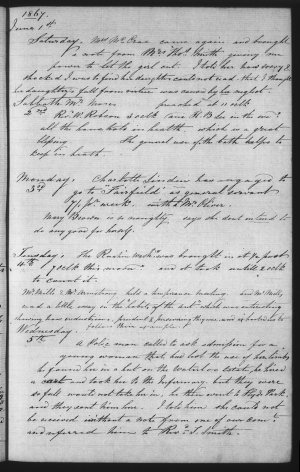 1867.
June 1st
Saturday, Mrs McCrae came again and brought
a note from Mrs Thos Smith giving me
power to let the girl out. I told her how sorry &
shocked I was to find her daughter could not read that I thought
her daughter's fall from virtue was caused by her neglect.
Sabbath Mr Moses preached at 11 oclk
2nd Revd W. Robson 3 oclk and H B Lee in the eve:
all the household in health which is a great
blessing the general use of the bath helps to
keep in health
Monday, Charlotte Linden has engaged to
3rd go to Fairfield as general servant
7/- pr week with Mrs
Mary Brown is so naughty, says she dont intend to
do any good for herself.
Tuesday, The Rankin wash was brought in at ½ past
4th 7 oclk this morng and it took until 2 oclk
to count it.
Mr Mills & Mr Armstrong held a temperance meeting and Mr Mills
said a little in the of the which was interesting
shewing how industrious, prudent & persevering they were, and exhorted us to
follow their example.
Wednesday
5th A Policeman called to ask admission for a
young woman that had lost the use of her limbs
he found her in a hut on the Waterloo estate, he hired
a cart and took her to the Infirmary but they were
so full would not take her in, he then went to Hyde Park,
and they sent him here. I told him she could not
be received without a note from one of our comt
and referred him to Revd J. Smith.